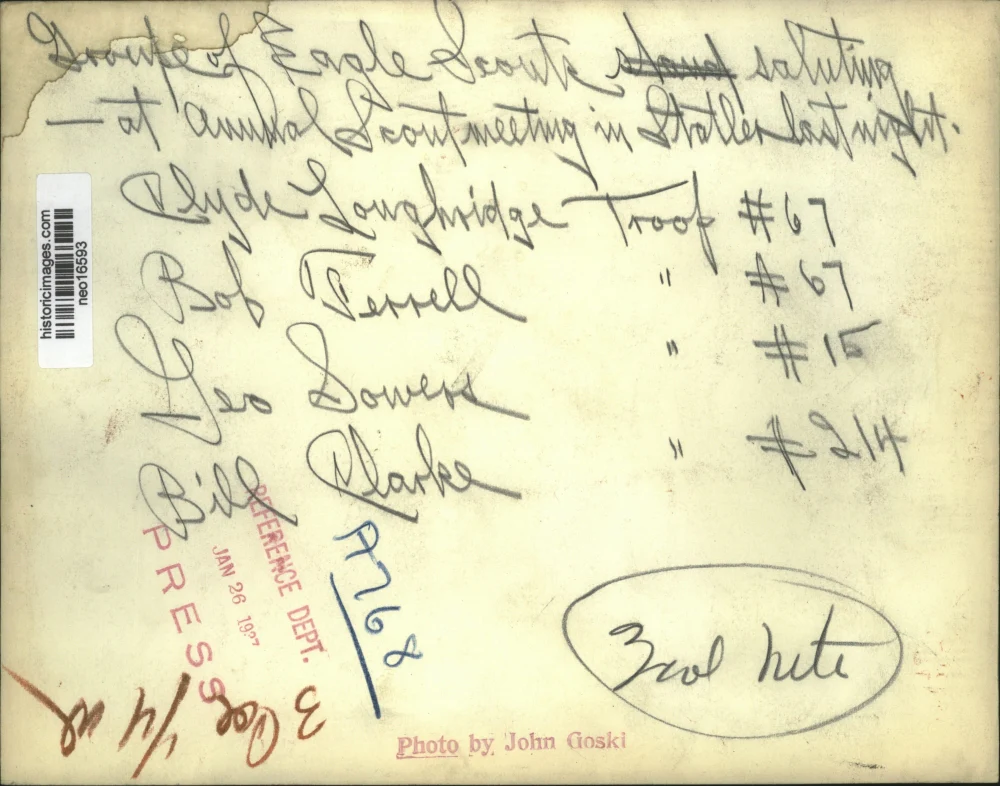 Group of Eagle Scouts saluting
— at Annual Scout meeting in Statler last night.
Clyde Loughridge Troop #67
Bob Terrell " #67
Geo Sowers " #15
Bill Clarke " #214
historicimages.com
neo16593
REFERENCE DEPT.
JAN 26 1937
PRESS
A768
3 Col
1/4
3 col nite
Photo by John Goski